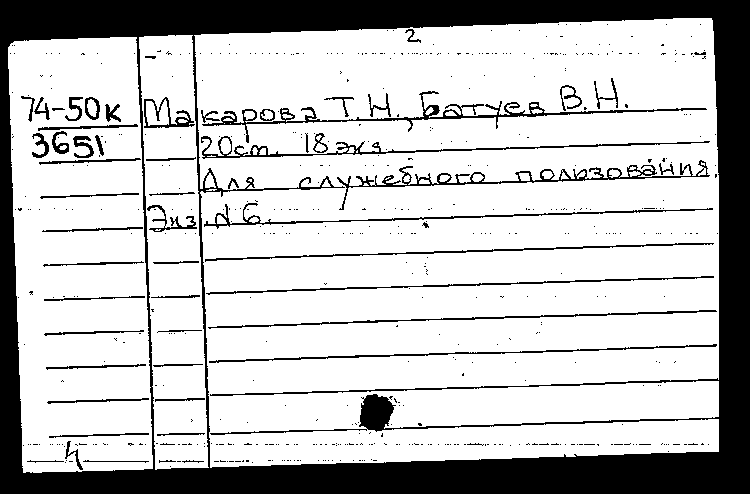 2
74-50к Макарова Т.Н., Батуев В.Н.
3651 20ст. 18 экз.
Для служебного пользования.
Экз. № 6.